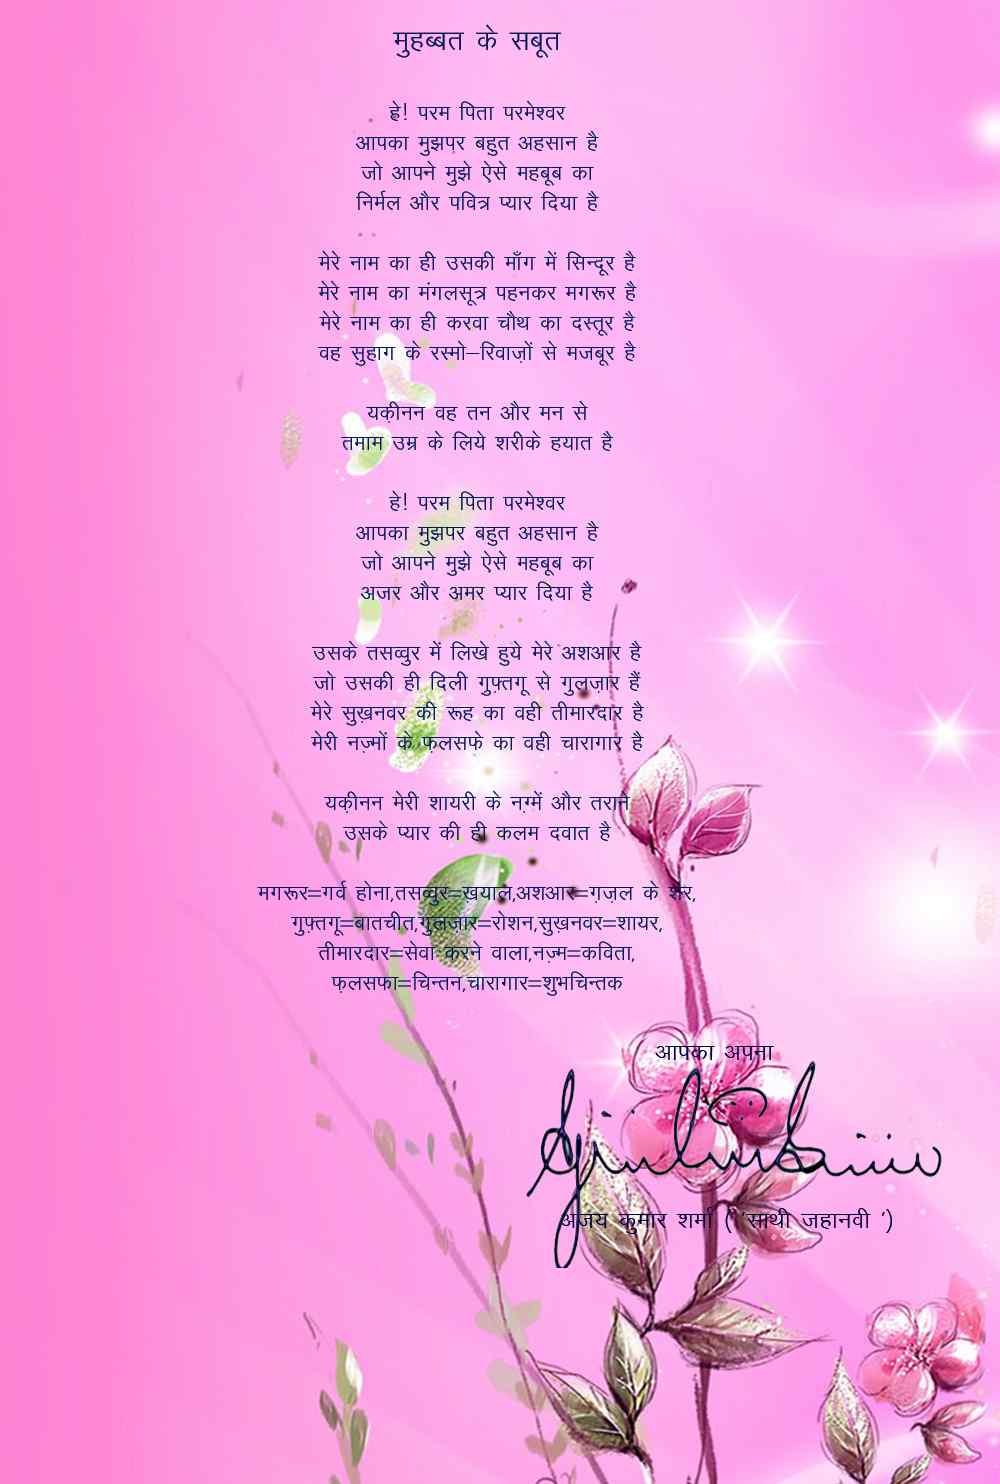 मुहब्बत के सबूत
हे! परम पिता परमेश्वर
आपका मुझपर बहुत अहसान है
जो आपने मुझे ऐसे महबूब का
निर्मल और पवित्र प्यार दिया है
मेरे नाम का ही उसकी माँग में सिन्दूर है
मेरे नाम का मंगलसूत्र पहनकर मगरूर है
मेरे नाम का ही करवा चौथ का दस्तूर है
वह सुहाग के रस्मो–रिवाज़ों से मजबूर है
यक़ीनन वह तन और मन से
तमाम उम्र के लिये शरीके हयात है
हे! परम पिता परमेश्वर
आपका मुझपर बहुत अहसान है
जो आपने मुझे ऐसे महबूब का
अजर और अमर प्यार दिया है
उसके तसव्वुर में लिखे हुये मेरे अशआर है
जो उसकी ही दिली गुफ़्तगू से गुलज़ार हैं
मेरे सुख़नवर की रूह का वही तीमारदार है
मेरी नज़्मों के फ़लसफे का वही चारागार है
यक़ीनन मेरी शायरी के नग़्में और तराने
उसके प्यार की ही कलम दवात है
मगरूर=गर्व होना,तसव्वुर=ख़याल,अशआर=ग़ज़ल के शेर,
गुफ़्तगू=बातचीत,गुलज़ार=रोशन,सुख़नवर=शायर,
तीमारदार=सेवा करने वाला,नज़्म=कविता,
फ़लसफा=चिन्तन,चारागार=शुभचिन्तक
आपका अपना
अजय कुमार शर्मा ( 'साथी जहानवी ')